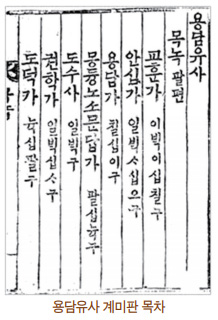 용담유사
목녹 팔편
교훈가 이빅이십칠구
안심가 일빅ᄉ십오구
용담가 칠십이구
몽듕노소문답가 팔십뉵구
도수사 일빅구
권학가 일빅십ᄉ구
도덕가 뉵십팔구
용담유사 계미판 목차